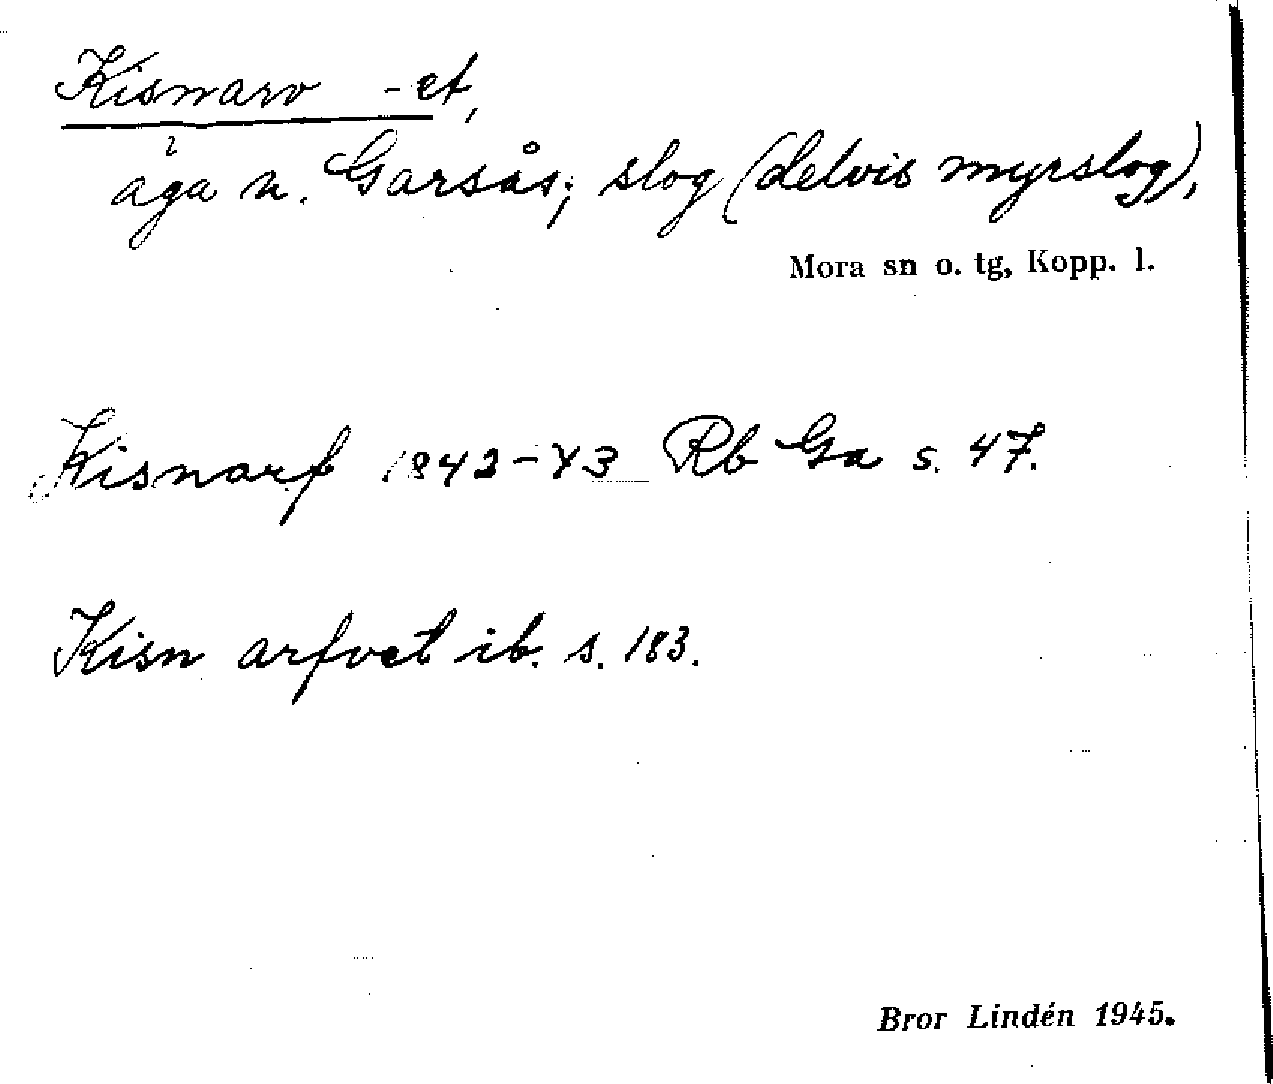 Kisnarv -et,
äga n. Garsås; slog (delvis myrslog),
Mora sn o. tg, Kopp. l.
Kisnarf 1842-43 Rb Ga s. 47.
Kisn arfvet ib. s. 183.
Bror Lindén 1945.